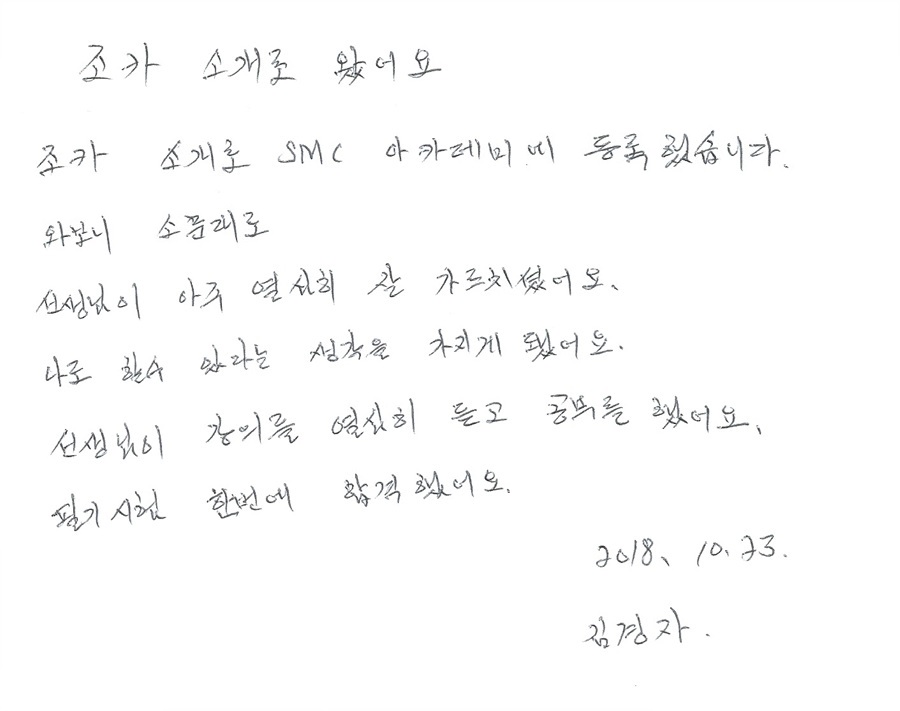 조카 소개로 왔어요
조카 소개로 SMC 아카데미에 등록했습니다.
와보니 소문대로
선생님이 아주 열심히 잘 가르치셨어요.
나도 할수 있다는 생각을 가지게 됐어요.
선생님이 강의를 열심히 듣고 공부를 했어요.
필기시험 한번에 합격했어요.
2018. 10. 23.
김경자.